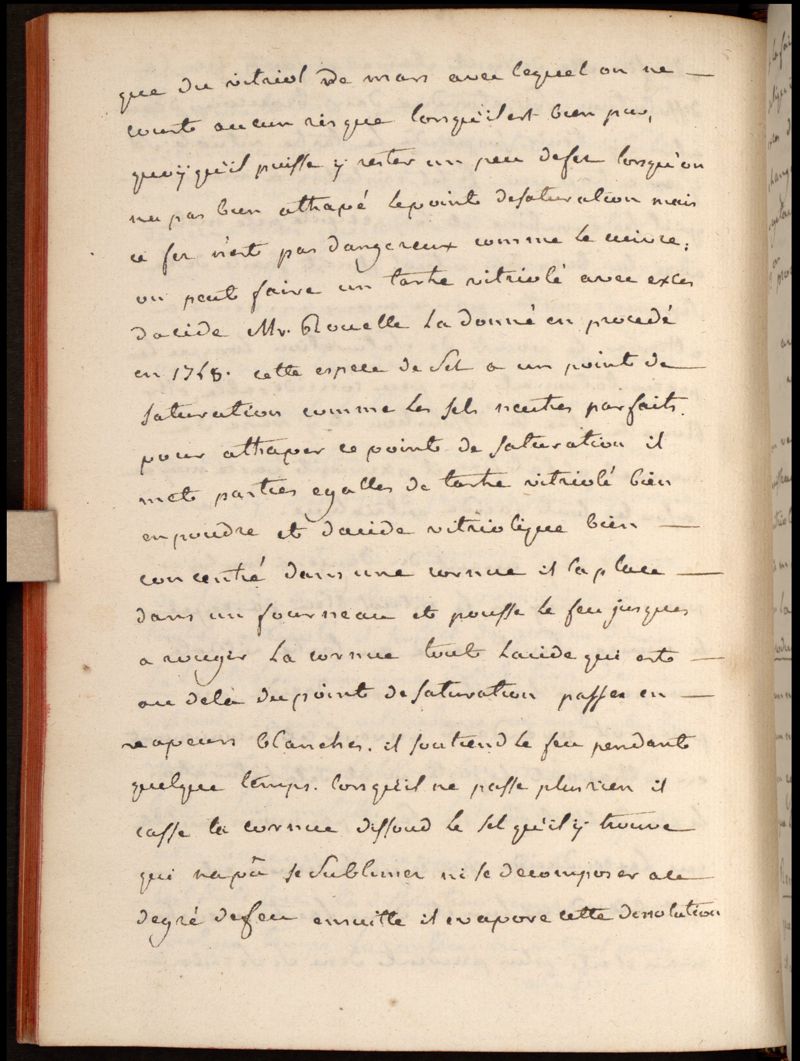 que du vitriol de mars avec lequel on ne —
court aucun risque lorsqu'il est bien pur,
quoÿqu'il puisse y rester un peu defer lorsqu'on
na pas bien attrapé lepoint desaturation mais
ce fer n'est pas dangereux comme le cuivre;
on peut faire un tartre vitriolé avec exces
dacide Mr. Rouelle La donné en procedé
en 1748. cette espece de Sel a un point de —
saturation comme Les sels neutres parfaits.
pour attraper ce point de saturation il
met parties egalles de tartre vitriolé bien
en poudre et dacide vitriolique bien —
concentré dans une cornue il la place —
dans un fourneau et pousse le feu jusques
a rougir La cornue tout Lacide qui est —
au dela du point desaturation passer en —
vapeurs blanches. il soutiend le feu pendant
quelque temps. lorsqu'il ne passe plus rien il
casse la cornue dissoud le sel qu'il y trouve
qui na pû se Sublimer ni se decomposer a ce
degré defeu ensuitte il evapore cette dissolution